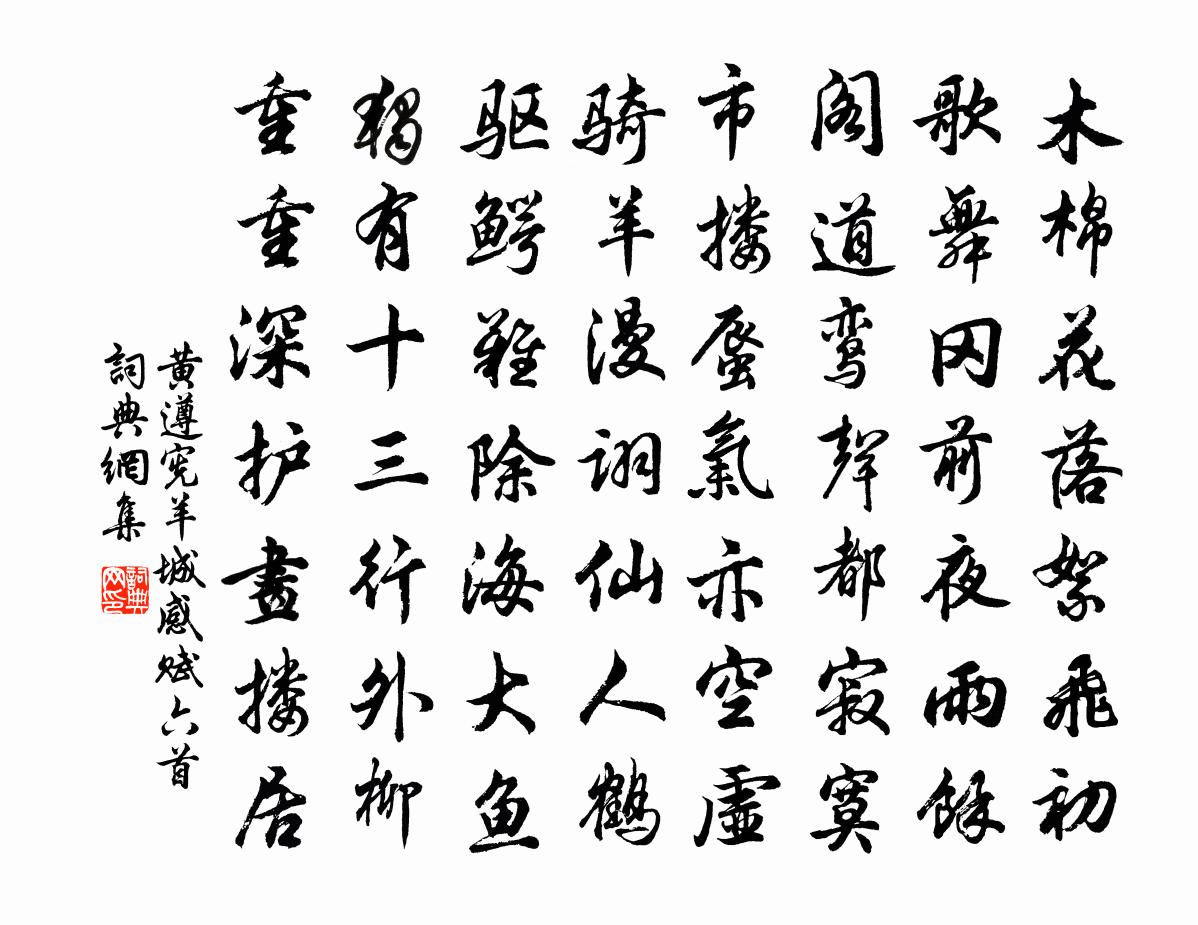 木棉花落絮飛初
歌舞冈前夜雨餘
阁道鸾聲都寂寞
市搂蜃氣亦空虛
骑羊漫诩仙人鶴
驱鳄难除海大鱼
獨有十三行外柳
重重深护畫搂居
黄遵宪羊城感赋六首
詞典網集
詞典网印